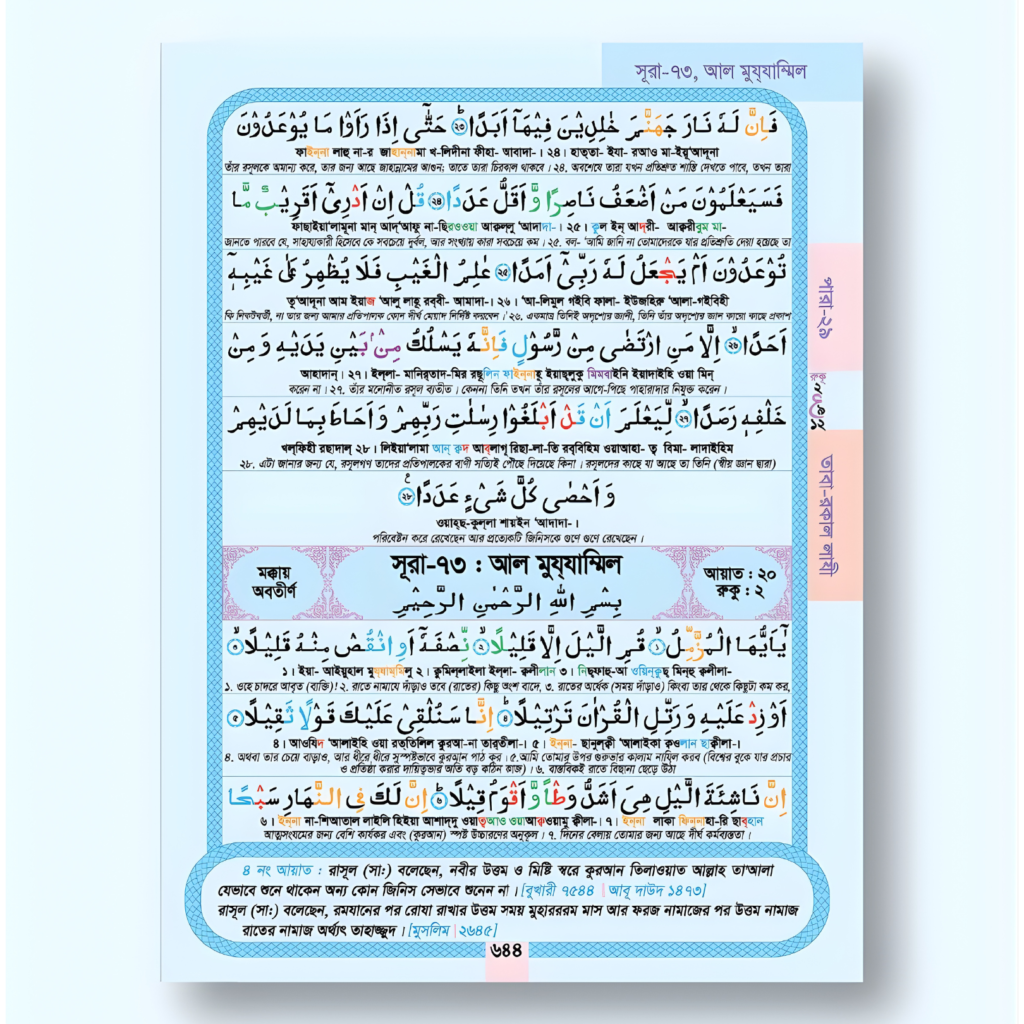 সূরা-৭৩, আল মুয্‌যাম্মিল
فَاِنَّ لَهٗ نَارَ جَهَنَّمَ خٰلِدِيْنَ فِيْهَاۤ اَبَدًا ۟ؕ۲۳ حَتّٰۤى اِذَا رَاَوْا مَا يُوْعَدُوْنَ
ফাইন্‌না লাহু না-র জাহান্‌নামা খ-লিদীনা ফীহা- আবাদা-। ২৪। হাত্‌তা- ইযা- রআও মা-ইয়ূ'আদূনা
তাঁর রসূলকে অমান্য করে, তার জন্য আছে জাহান্নামের আগুন; তাতে তারা চিরকাল থাকবে। ২৪. অবশেষে তারা যখন প্রতিশ্রুত শাস্তি দেখতে পাবে, তখন তারা
فَسَيَعْلَمُوْنَ مَنْ اَضْعَفُ نَاصِرًا وَّ اَقَلُّ عَدَدًا ۲۴ قُلْ اِنْ اَدْرِيْۤ اَقَرِيْبٌ مَّا
ফাছাইয়া'লামূনা মান্‌ আদ্‌'আফু না-ছিরওওয়া আকল্লু 'আদাদা-। ২৫। কুল ইন্‌ আদ্‌রী- আকরীবুম মা-
জানতে পারবে যে, সাহায্যকারী হিসেবে কে সবচেয়ে দুর্বল, আর সংখ্যায় কারা সবচেয়ে কম। ২৫. বল- 'আমি জানি না তোমাদেরকে যার প্রতিশ্রুতি দেয়া হয়েছে তা
تُوْعَدُوْنَ اَمْ يَجْعَلُ لَهٗ رَبِّيْۤ اَمَدًا ۲۵ عٰلِمُ الْغَيْبِ فَلَا يُظْهِرُ عَلٰى غَيْبِهٖۤ
তূ'আদূনা আম ইয়াজ 'আলু লাহূ রব্‌বী- আমাদা-। ২৬। 'আ-লিমুল গইবি ফালা- ইউজহিরু 'আলা-গইবিহী
কি নিকটবর্তী, না তার জন্য আমার প্রতিপালক কোন দীর্ঘ মেয়াদ নির্দিষ্ট করবেন।' ২৬. একমাত্র তিনিই অদৃশ্যের জ্ঞানী, তিনি তাঁর অদৃশ্যের জ্ঞান কারো কাছে প্রকাশ
اَحَدًا ۙ۲۶ اِلَّا مَنِ ارْتَضٰى مِنْ رَّسُوْلٍ فَاِنَّهٗ يَسْلُكُ مِنْۢ بَيْنِ يَدَيْهِ وَ مِنْ
আহাদান্‌। ২৭। ইল্‌লা- মানিরতাদ-মির রছূলিন ফাইন্‌নাহূ ইয়াছ্‌লুকু মিমবাইনি ইয়াদাইহি ওয়া মিন্‌
করেন না। ২৭. তাঁর মনোনীত রসূল ব্যতীত। কেননা তিনি তখন তাঁর রসূলের আগে-পিছে পাহারাদার নিযুক্ত করেন।
خَلْفِهٖ رَصَدًا ۙ۲۷ لِّيَعْلَمَ اَنْ قَدْ اَبْلَغُوْا رِسٰلٰتِ رَبِّهِمْ وَ اَحَاطَ بِمَا لَدَيْهِمْ
খল্‌ফিহী রছাদাল্‌ ২৮। লিইয়া'লামা আন্‌ ক্বদ আব্‌লাগূ রিছা-লা-তি রব্‌বিহিম ওয়াআহা- ত্ব বিমা- লাদাইহিম
২৮. এটা জানার জন্য যে, রসূলগণ তাদের প্রতিপালকের বাণী সত্যিই পৌঁছে দিয়েছে কিনা। রসূলদের কাছে যা আছে তা তিনি (স্বীয় জ্ঞান দ্বারা)
وَ اَحْصٰى كُلَّ شَيْءٍ عَدَدًا ۲۸
ওয়াহ্‌ছ-কুল্‌লা শায়ইন 'আদাদা-।
পরিবেষ্টন করে রেখেছেন আর প্রত্যেকটি জিনিসকে গুণে গুণে রেখেছেন।
মক্কায় অবতীর্ণ
সূরা-৭৩ : আল মুয্‌যাম্মিল
بِسْمِ اللّٰهِ الرَّحْمٰنِ الرَّحِيْمِ
আয়াত : ২০
রুকু : ২
يٰۤاَيُّهَا الْمُزَّمِّلُ ۙ۱ قُمِ الَّيْلَ اِلَّا قَلِيْلًا ۙ۲ نِّصْفَهٗۤ اَوِ انْقُصْ مِنْهُ قَلِيْلًا ۙ۳
১। ইয়া- আইয়ুহাল মুয্‌যাম্‌মিলু ২। কুমিল্‌লাইলা ইল্‌লা- ক্বলীলান ৩। নিছ্‌ফাহু-আ ওয়িন্‌কুছ্‌ মিন্‌হু ক্বলীলা-
১. ওহে চাদরে আবৃত (ব্যক্তি)! ২. রাতে নামাযে দাঁড়াও তবে (রাতের) কিছু অংশ বাদে, ৩. রাতের অর্ধেক (সময় দাঁড়াও) কিংবা তার থেকে কিছুটা কম কর,
اَوْ زِدْ عَلَيْهِ وَ رَتِّلِ الْقُرْاٰنَ تَرْتِيْلًا ؕ۴ اِنَّا سَنُلْقِيْ عَلَيْكَ قَوْلًا ثَقِيْلًا ۵
৪। আওযিদ 'আলাইহি ওয়া রত্‌তিলিল কুরআ-না তার্‌তীলা-। ৫। ইন্‌না- ছানুল্‌ক্বী 'আলাইকা ক্বওলান ছাক্বীলা-।
৪. অথবা তার চেয়ে বাড়াও, আর ধীরে ধীরে সুস্পষ্টভাবে কুরআন পাঠ কর। ৫.আমি তোমার উপর গুরুভার কালাম নাযিল করব (বিশ্বের বুকে যার প্রচার
ও প্রতিষ্ঠা করার দায়িত্বভার অতি বড় কঠিন কাজ)। ৬. বাস্তবিকই রাতে বিছানা ছেড়ে উঠা
اِنَّ نَاشِئَةَ الَّيْلِ هِيَ اَشَدُّ وَطْاً وَّ اَقْوَمُ قِيْلًا ؕ۶ اِنَّ لَكَ فِي النَّهَارِ سَبْحًا
৬। ইন্‌না না-শিআতাল লাইলি হিইয়া আশাদ্দু ওয়াত্বআও ওয়াআক্বওয়ামু ক্বীলা-। ৭। ইন্‌না লাকা ফিন্‌নাহা-রি ছাব্‌হান
আত্মসংযমের জন্য বেশি কার্যকর এবং (কুরআন) স্পষ্ট উচ্চারণের অনুকূল। ৭. দিনের বেলায় তোমার জন্য আছে দীর্ঘ কর্মব্যস্ততা।
পারা-২৯
রুকু
তাবা-রকাল লাযী
৪ নং আয়াত : রাসূল (সা:) বলেছেন, নবীর উত্তম ও মিষ্টি স্বরে কুরআন তিলাওয়াত আল্লাহ তা'আলা
যেভাবে শুনে থাকেন অন্য কোন জিনিস সেভাবে শুনেন না। [বুখারী ৭৫৪৪ | আবূ দাউদ ১৪৭৩]
রাসূল (সা:) বলেছেন, রমযানের পর রোযা রাখার উত্তম সময় মুহাররম মাস আর ফরজ নামাজের পর উত্তম নামাজ
রাতের নামাজ অর্থ্যৎ তাহাজ্জুদ। [মুসলিম | ২৬৪৫]
৬৪৪